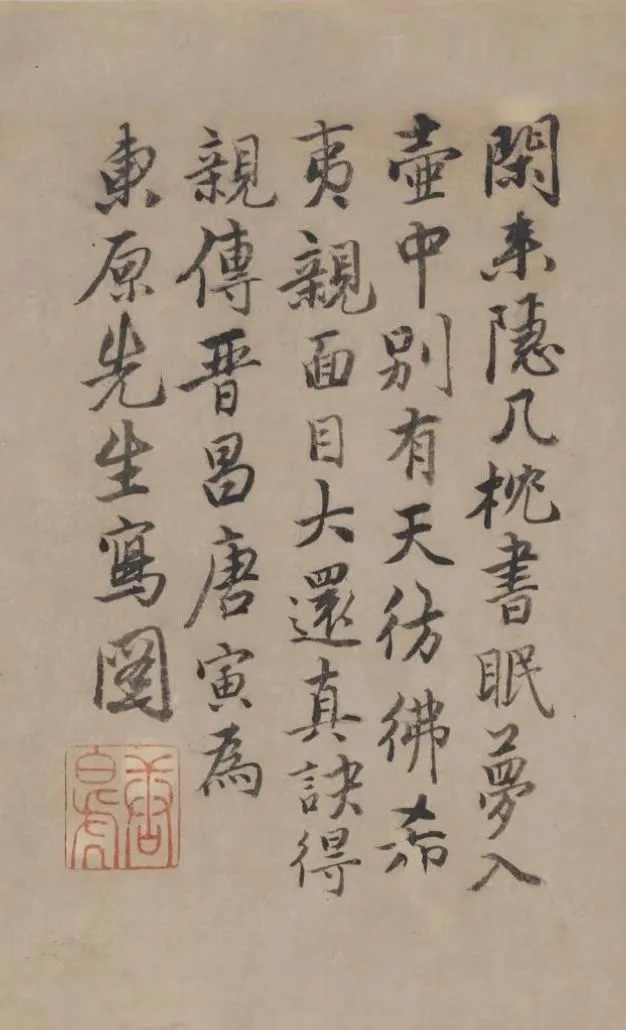 閑来隱几枕書眠夢入
壺中别有天彷彿希
夷親面目大還真訣得
親傳晋昌唐寅為
東原先生寫圖
唐白虎